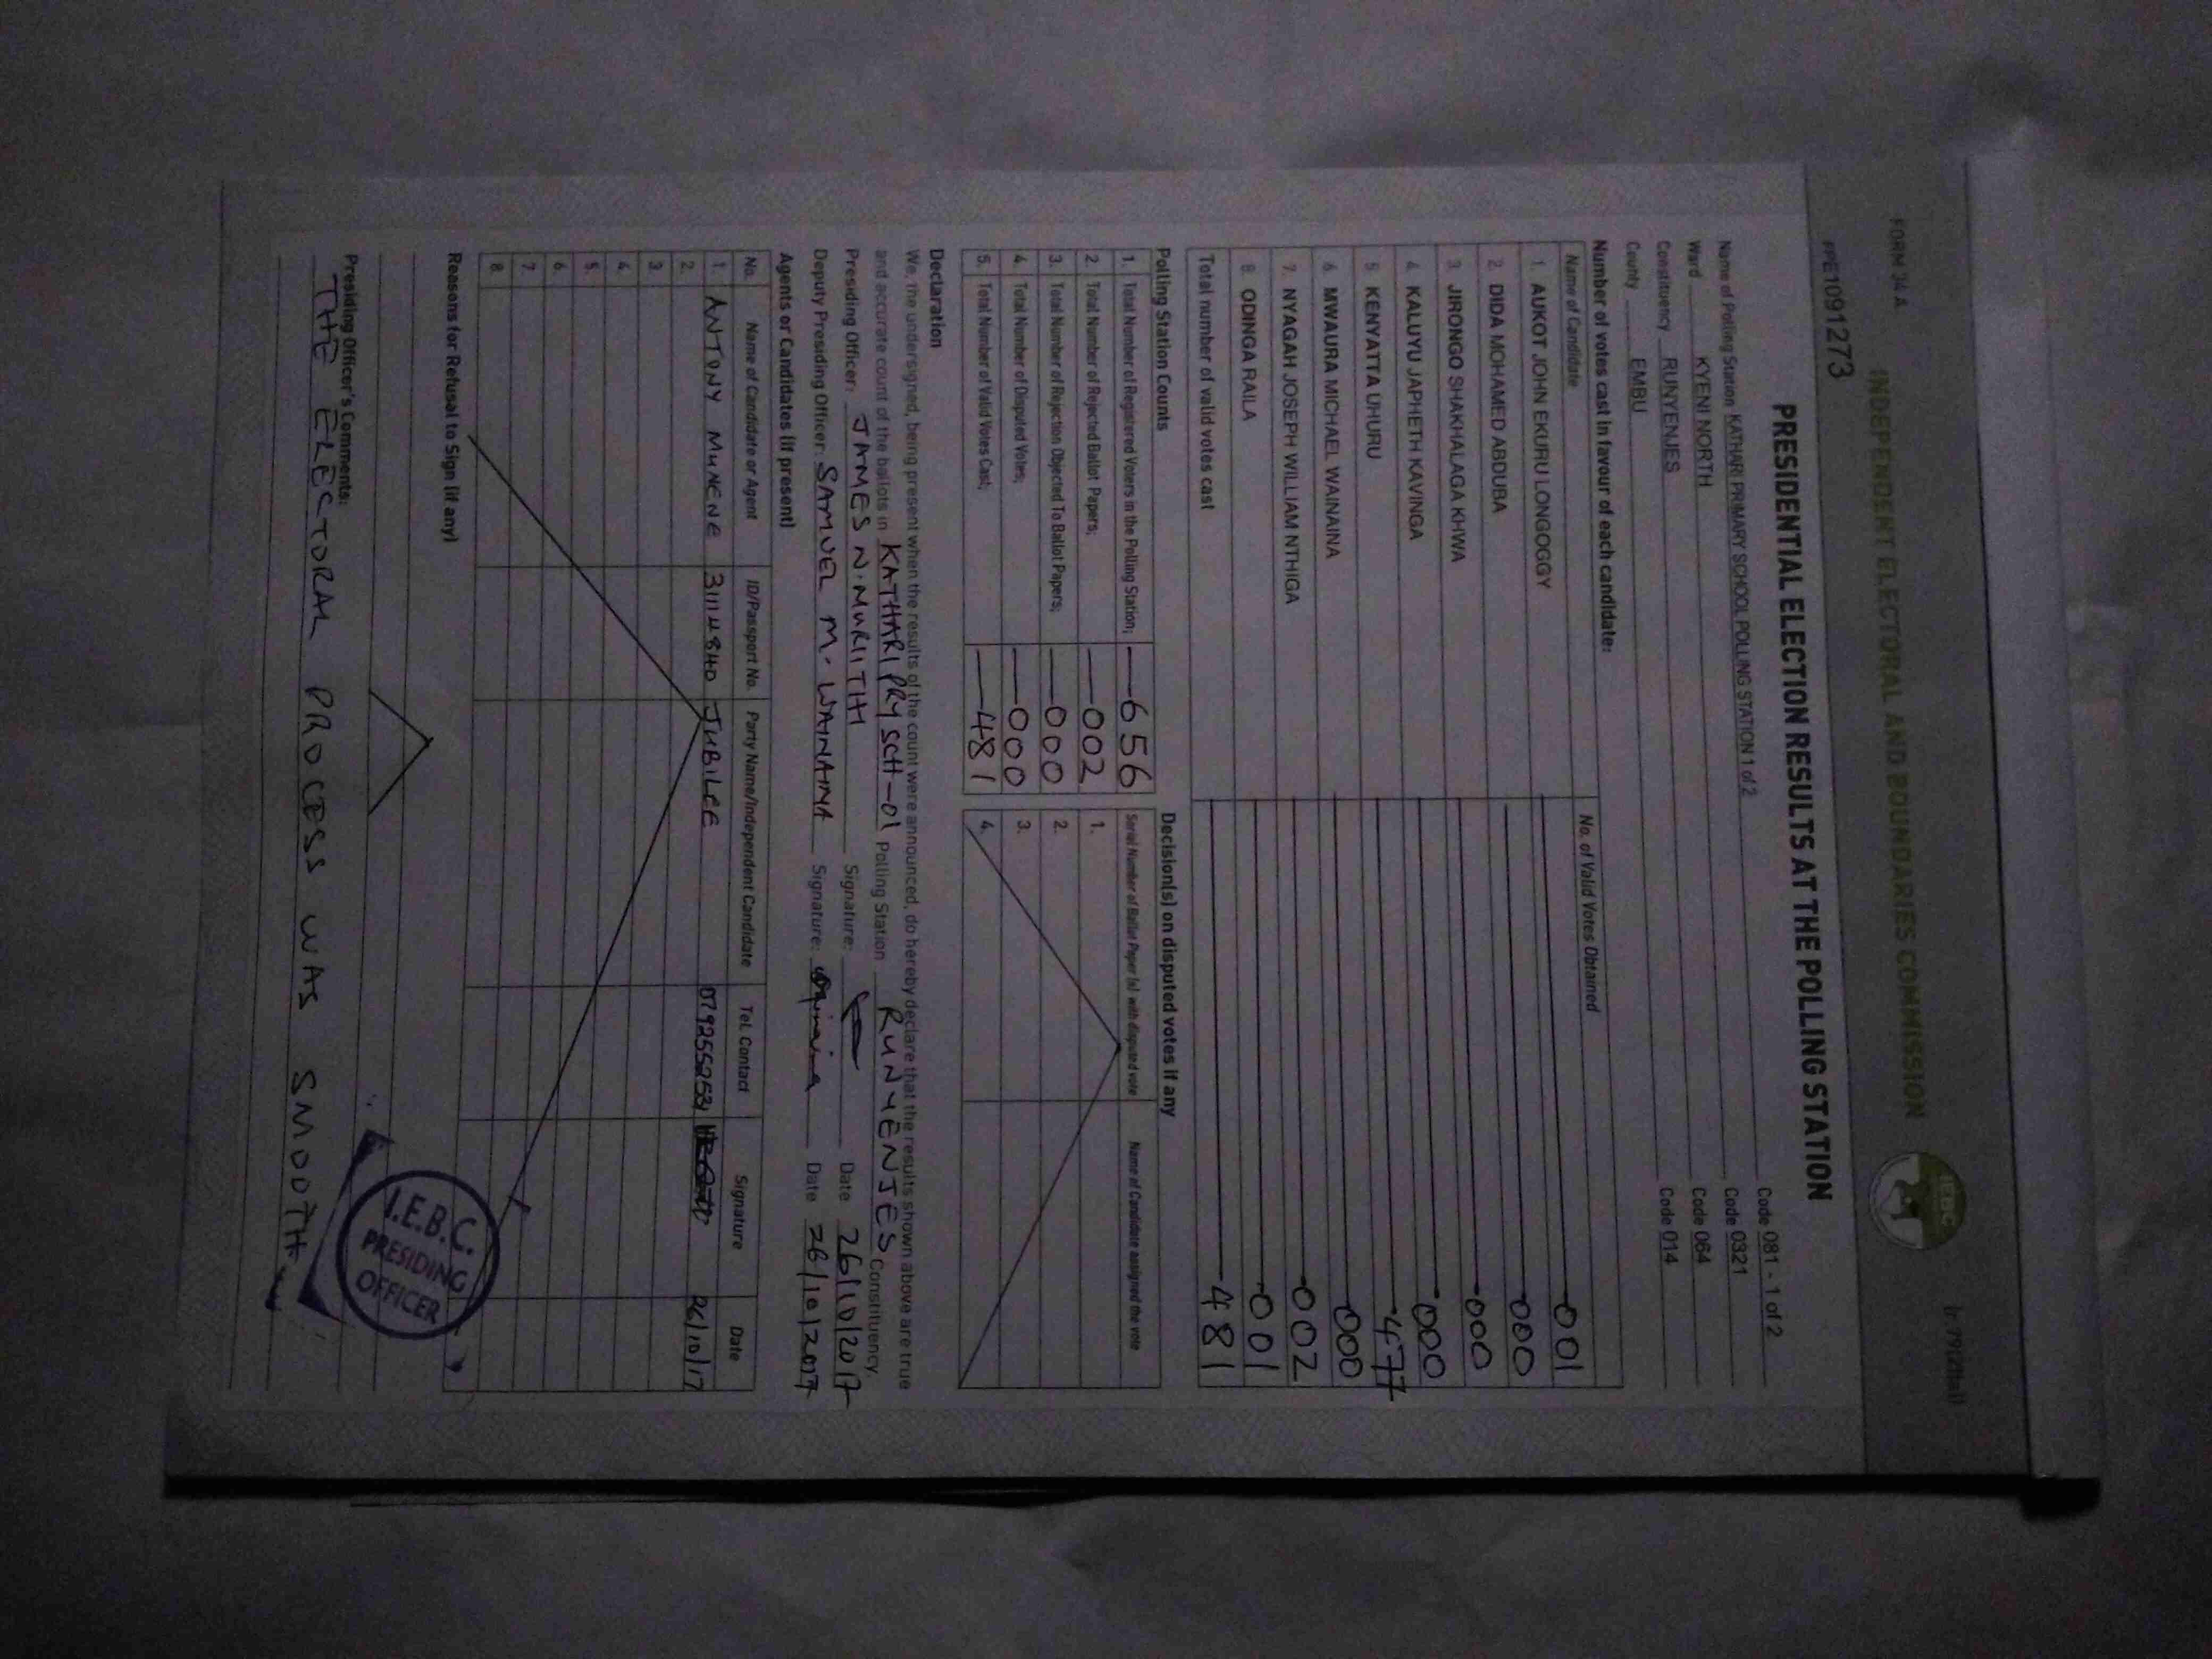 FORM 34 A
INDEPENDENT ELECTORAL AND BOUNDARIES COMMISSION
IEBC
PPE1091273
PRESIDENTIAL ELECTION RESULTS AT THE POLLING STATION
Name of Polling Station KATHARI PRIMARY SCHOOL POLLING STATION 1 of 2 Code 081 - 1 of 2
Ward KYENI NORTH Code 0321
Constituency RUNYENJES Code 064
County EMBU Code 014
Number of votes cast in favour of each candidate:
Name of Candidate No. of Valid Votes Obtained
1. AUKOT JOHN EKURU LONGOGGY 001
2. DIDA MOHAMED ABDUBA 000
3. JIRONGO SHAKHALAGA KHWA 000
4. KALUYU JAPHETH KAVINGA 000
5 KENYATTA UHURU 477
6 MWAURA MICHAEL WAINAINA 000
7. NYAGAH JOSEPH WILLIAM NTHIGA 002
8. ODINGA RAILA 001
Total number of valid votes cast 481
Polling Station Counts
1. Total Number of Registered Voters in the Polling Station; 656
2. Total Number of Rejected Ballot Papers; 002
3. Total Number of Rejection Objected To Ballot Papers; 000
4. Total Number of Disputed Votes; 000
5. Total Number of Valid Votes Cast; 481
Decision(s) on disputed votes if any
Serial Number of Ballot Paper (s) with disputed vote Name of Candidate assigned the vote
1.
2.
3.
4.
Declaration
We, the undersigned, being present when the results of the count were announced, do hereby declare that the results shown above are true
and accurate count of the ballots in KATHARI PRY SCH-01 Polling Station RUNYENJES Constituency.
Presiding Officer: JAMES N. MURIITHI Signature: Date 26/10/2017
Deputy Presiding Officer: SAMUEL M. WAINAINA Signature: Date 26/10/2017
Agents or Candidates (if present)
No. Name of Candidate or Agent ID/Passport No. Party Name/Independent Candidate Tel. Contact Signature Date
1. ANTONY MUNENE 31114840 JUBILEE 0792552531 26/10/17
2.
3.
4.
5.
6.
7.
8.
Reasons for Refusal to Sign (if any)
Presiding Officer's Comments:
THE ELECTORAL PROCESS WAS SMOOTH
I.E.B.C.
PRESIDING
OFFICER